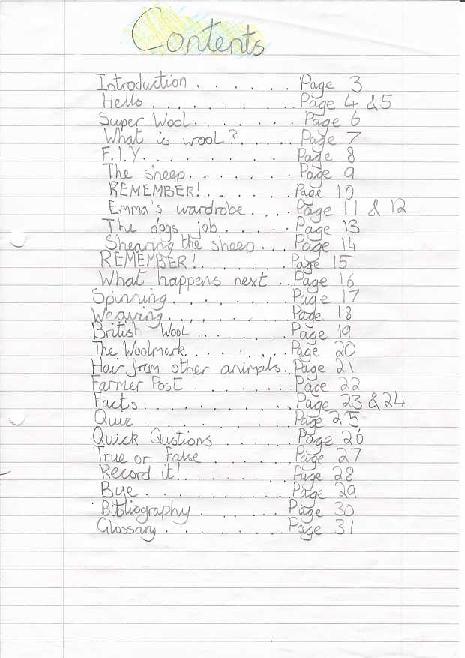 Contents
Introduction . . . . . . . Page 3
Hello . . . . . . . . . . . Page 4 & 5
Super Wool . . . . . . . . Page 6
What is wool? . . . . . . Page 7
F.I.Y. . . . . . . . . . . Page 8
The sheep . . . . . . . . Page 9
REMEMBER! . . . . . . . Page 10
Emma's wardrobe . . . . Page 11 & 12
The dogs job . . . . . . Page 13
Shearing the sheep . . . . Page 14
REMEMBER! . . . . . . . Page 15
What happens next . . Page 16
Spinning . . . . . . . . . Page 17
Weaving . . . . . . . . . Page 18
British Wool . . . . . . . Page 19
The Woolmark . . . . . . . Page 20
Hair from other animals . . Page 21
Farmer Post . . . . . . . Page 22
Facts . . . . . . . . . . . Page 23 & 24
Page 25
Quick Qustions . . . . . . Page 26
True or False . . . . . . . Page 27
Record it! . . . . . . . . Page 28
Bye . . . . . . . . . . . Page 29
Bibliography . . . . . . . Page 30
Glossary . . . . . . . . . Page 31